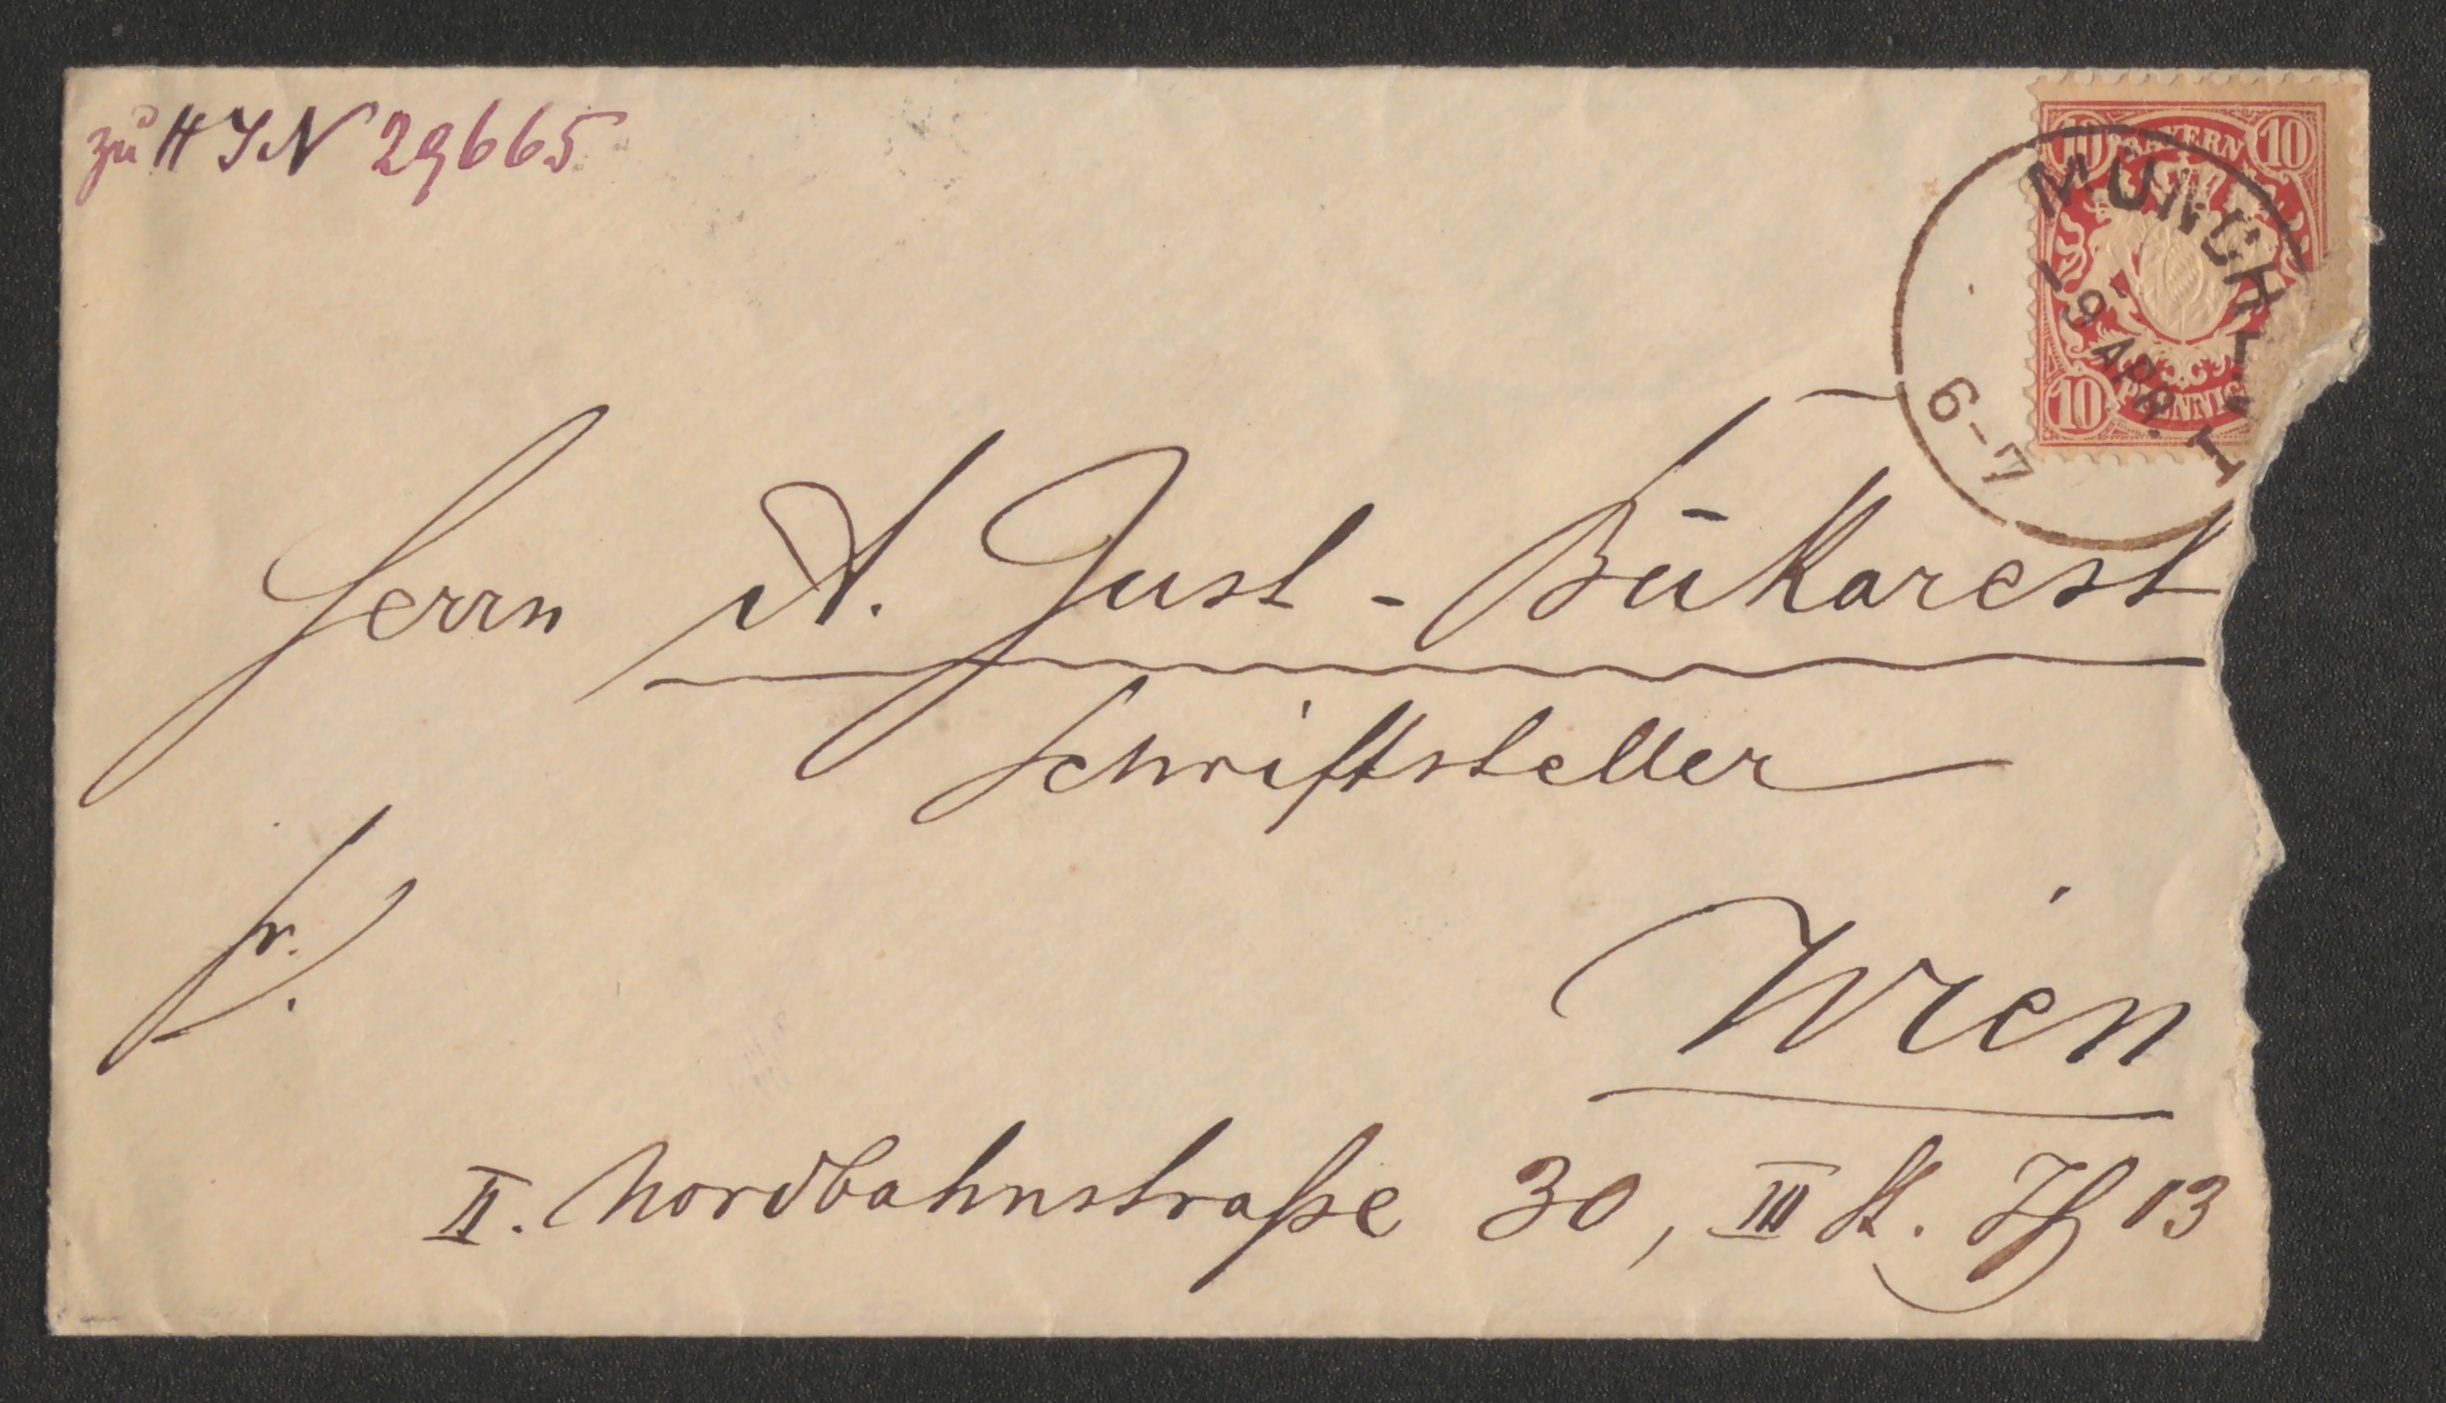 zu H I N 29665
10 BAYERN 10
MÜNCHEN I
9 APR.
6-7
10 PFENNIG
Herrn A. Just - Bukarest
Schriftsteller
fr.
Wien
II. Nordbahnstraße 30, III St. Th 13